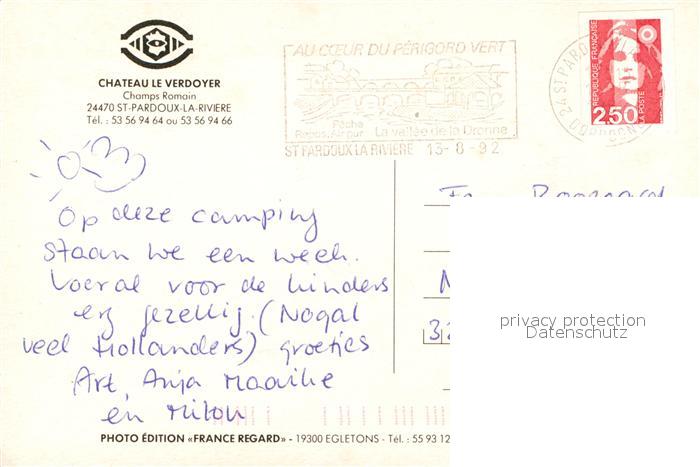 CHATEAU LE VERDOYER
Champs Romain
24470 ST-PARDOUX-LA-RIVIERE
Tél. : 53 56 94 64 ou 53 56 94 66
AU CŒUR DU PÉRIGORD VERT
Pêche
Repos, Air pur La vallée de la Dronne
ST PARDOUX LA RIVIERE 13-8-92
24 ST PARDO
DORDOGNE
REPUBLIQUE FRANÇAISE
LA POSTE
2,50
Op deze camping
staan we een week.
Vooral voor de kinders
erg gezellig. (Nogal
veel Hollanders) groetjes
Art, Anja Maaike
en Milou
privacy protection
Datenschutz
PHOTO ÉDITION «FRANCE REGARD» - 19300 EGLETONS - Tél. : 55 93 12